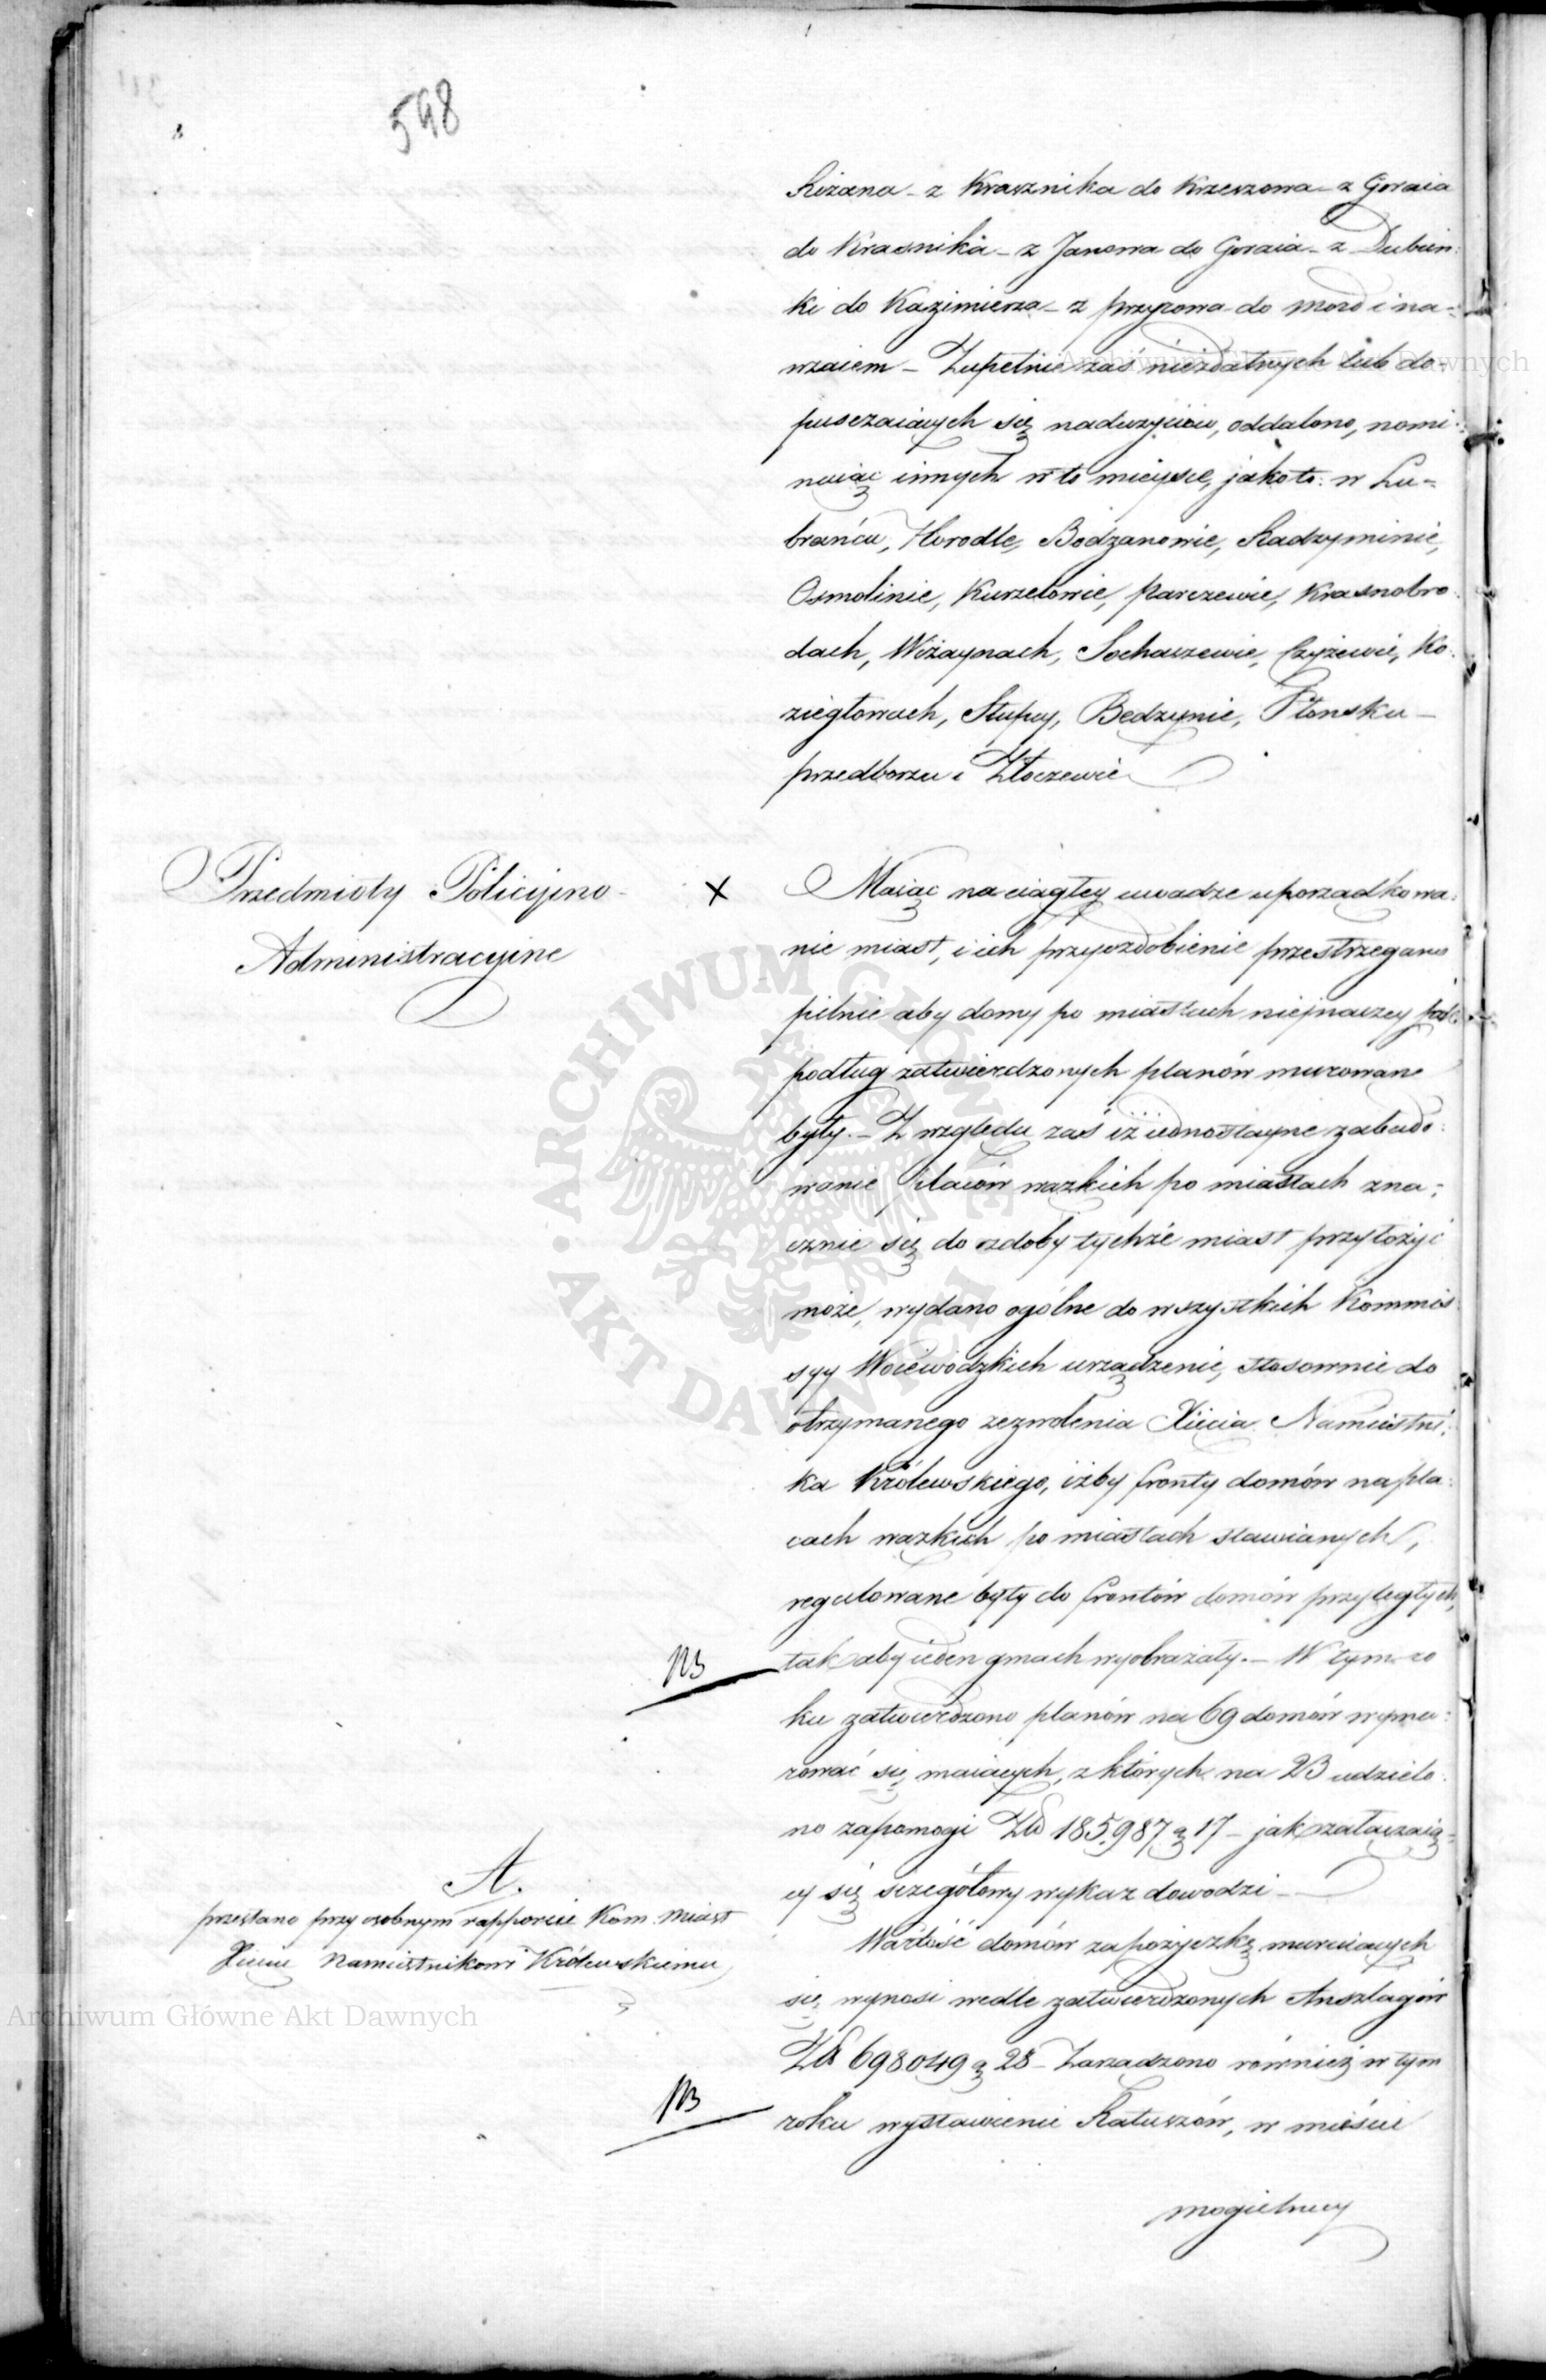 598
Rożana – z Krasznika do Krzeszowa – z Goraia
do Krasnika – z Janowa do Goraia – z Dubien:
ki do Kazimierza – z przyrowa do Mord i na-
wzaiem – Zupełnie zaś niezdatnych lub do-
pusczaiących się nadużyciów, oddalono, nomi:
nuiąc innych w to mieysce, jako to: w Lu-
brańcu, Horodle, Bodzanowie, Radzyminie,
Osmolinie, Kurzelowie, Parczewie, Krasnobro
dach, Wiżaynach, Sochaszewie, Czyżewie, Ko
ziegłowach, Słupcy, Bedzynie, Płonsku –
przedborzu i Złoczewie
Przedmioty Policyjno-
Administracyine
X
Maiąc na ciągłey uwadze uporządkowa:
nie miast, i ich przyozdobienie przestrzegano
pilnie aby domy po miastach nieinaczey jak
podług zatwierdzonych planów murowane
były. – Z względu zaś iż iednostayne zabudo:
wanie placów wązkich po miastach zna:
cznie się do ozdoby tychże miast przyłożyć
może, wydano ogólne do wszystkich Kommis
syy Woiewodzkich urządzenie, stosownie do
otrzymanego zezwolenia Xięcia Namiestni:
ka Królewskiego, iżby fronty domów na pla:
cach wązkich po miastach stawianych,
regulowane były do frontów domów przyległych,
NB
tak aby ieden gmach wyobrażały. – W tym ro
ku zatwierdzono planów na 69 domów wymu:
rować się maiących, z których na 23 udzielo:
no zapomogi Zł 185,987 g 17 – jak załączaią-
cy się sczegółowy wykaz dowodzi –
A.
przesłano przy osobnym rapporcie Kom. Miast
Xięciu Namiestnikowi Królewskiemu
Wartość domów zapożyczką muruiących
się, wynosi wedle zatwierdzonych Anszlagów
Zł 698049 g 28 – Zarządzono również w tym
NB
roku wystawienie Ratuszów, w mieście
Mogielnicy
Archiwum Główne Akt Dawnych
Archiwum Główne Akt Dawnych
ARCHIWUM GŁÓWNE • AKT DAWNYCH